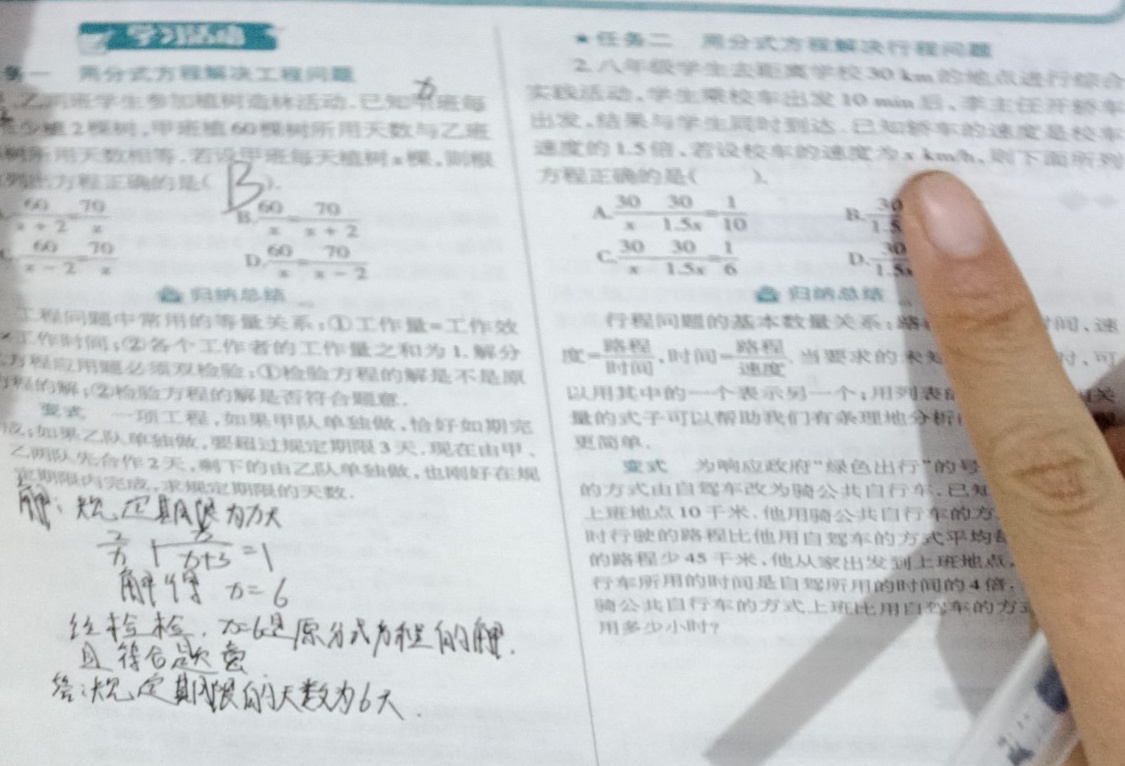 学习活动
务一 用分式方程解决工程问题
乙两班学生参加植树造林活动.已知 班每
少植2棵树,甲班植60棵树所用天数与乙班
树所用天数相等.若设甲班每天植树x棵,则根
列出方程正确的是( B ).
60/x+2=70/x B.60/x=70/x+2
C.60/x-2=70/x D.60/x=70/x-2
归纳总结
工程问题中常用的等量关系:①工作量=工作效
×工作时间;②各个工作者的工作量之和为1.解分
方程应用题必须双检验:①检验方程的解是不是原
方程的解;②检验方程的解是否符合题意.
变式 一项工程,如果甲队单独做,恰好如期完
成;如果乙队单独做,要超过规定期限3天.现在由甲、
乙两队先合作2天,剩下的由乙队单独做,也刚好在规
定期限内完成,求规定期限的天数.
解:规定期限为x天
2/x+x/x+3=1
解得 x=6
经检检,x=6是原分式方程的解.
且符合题意
答:规定期限的天数为6天.
★任务二 用分式方程解决行程问题
2.八年级学生去距离学校30 km的地点进行综合
实践活动,学生乘校车出发10 min后,李主任开轿车
出发,结果与学生同时到达.已知轿车的速度是校车
速度的1.5倍,若设校车的速度为x km/h,则下面所列
方程正确的是( ).
A.30/x-30/1.5x=1/10 B.30/1.5
C.30/x-30/1.5x=1/6 D.30/1.5x
归纳总结
行程问题的基本数量关系:路 时间,速
度=路程/时间,时间=路程/速度.当要求的未知 时,可
以用其中的一个表示另一个;用列表 关
量的式子可以帮助我们有条理地分析
更简单.
变式 为响应政府“绿色出行”的号
的方式由自驾车改为骑公共自行车.已知
上班地点10千米.他用骑公共自行车的方
时行驶的路程比他用自驾车的方式平均每
的路程少45千米,他从家出发到上班地点,
行车所用的时间是自驾所用的时间的4倍.
骑公共自行车的方式上班比用自驾车的方式
用多少小时?